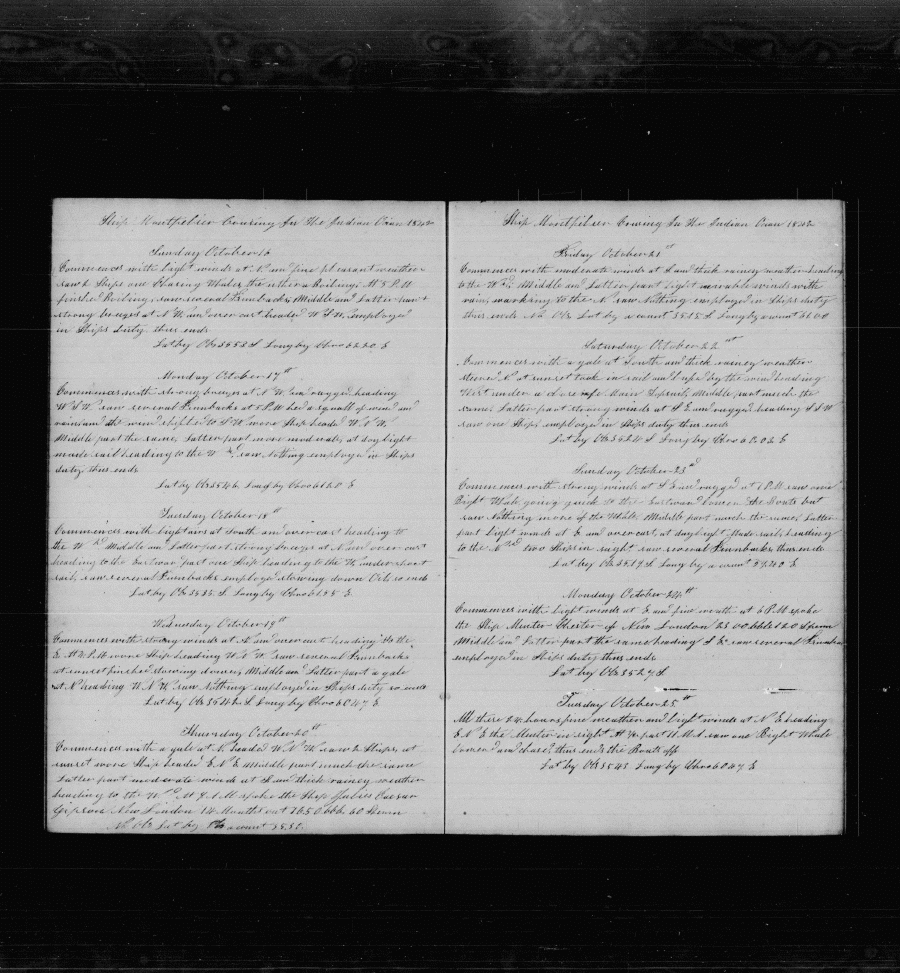 Ship Montpelier Crusing In The Indian Ocean 1842
Sunday October 16
Commences with light winds at N. and fine pleasant weather
saw 2 Ships one Chasing Whales the other a Boiling; At 5 P.M
finished Boiling, saw several Finnbacks, Middle and Latter part
strong breezes at N. W. and overcast headed W S W, employed
in Ships duty thus ends
Lat by Obs 3558 S Long by Chro 6220 E
Monday October 17th
Commences with strong breezes at N. W. and rugged heading
W S W. saw several Finnbacks at 5 P.M had a squall of wind and
rain and the wind shifted to S W wore Ship headed W. N W.
Middle part the same, Latter part more moderate, at day light
made sail heading to the W rd, saw Nothing employed in Ships
duty thus ends
Lat by Obs 3546 Long by Chro 6120 E
Tuesday October 18th
Commences with light airs at South and overcast heading to
the W rd Middle and Latter part strong breezes at N. and overcast
heading to the Eastward part one Ship heading to the W. under short
sail, saw several Finnbacks employed stowing down Oil so ends
Lat by Obs 3535 S Long by Chro 6135 E
Wednesday October 19th
Commences with strong winds at N. and overcast heading to the
E. At 4 P.M wore Ship heading W. N W. saw several Finnbacks
at sunset finished stowing down, Middle and Latter part a gale
at N heading W. N W. saw Nothing employed in Ships duty so ends
Lat by Obs 3542 S Long by Chro 6047 E
Thursday October 20th
Commences with a gale at N. headed W. N W. saw 2 Ships, at
sunset wore Ship headed E. N E Middle part much the same
Latter part moderate winds at S. and thick rainey weather
heading to the W rd At 8 A M spoke the Ship Julius Caesar
Gipson New London 14 Months out 1650 bbls 60 Sperm
No Obs Lat by account 3535
Ship Montpelier Crusing In The Indian Ocean 1842
Friday October 21st
Commences with moderate winds at S. and thick rainey weather heading
to the W rd; Middle and Latter part light variable winds with
rain, working to the N. saw Nothing employed in Ships duty
thus ends No Obs Lat by account 3515 S Long by account 6100
Saturday October 22nd
Commences with a gale at South and thick rainey weather
steered N. at sunset took in sail and luffed by the wind heading
West under a close reefd Main Topsail, Middle part much the
same; Latter part strong winds at S. E. and rugged heading S S W
saw one Ship, employed in Ships duty thus ends
Lat by Obs 3524 S Long by Chro 6002 E
Sunday October 23d
Commences with strong winds at S E and rugged at 1 P.M saw one
Right Whale going quick to the Eastward lowerd the Boats but
saw Nothing more of the Whale, Middle part much the same, Latter
part light winds at E. and overcast, at daylight Made sail, heading
to the N rd two Ships in sight saw several Finnbacks thus ends
Lat by Obs 3519 S Long by account 5920 E
Monday October 24th
Commences with light winds at E and fine weath at 6 P.M spoke
the Ship Mentor Chester of New London 2300 bbls 120 Sperm
Middle and Latter part the same heading S E. saw several Finnbacks
employed in Ships duty thus ends
Lat by Obs 3527 S
Tuesday October 25th
All these 24 hours fine weather and light winds at N. E heading
E. N E the Mentor in sight At ½ past 11 A.M saw one Right Whale
lowered and chased, thus ends the Boats off
Lat by Obs 3543 Long by Chro 6047 E